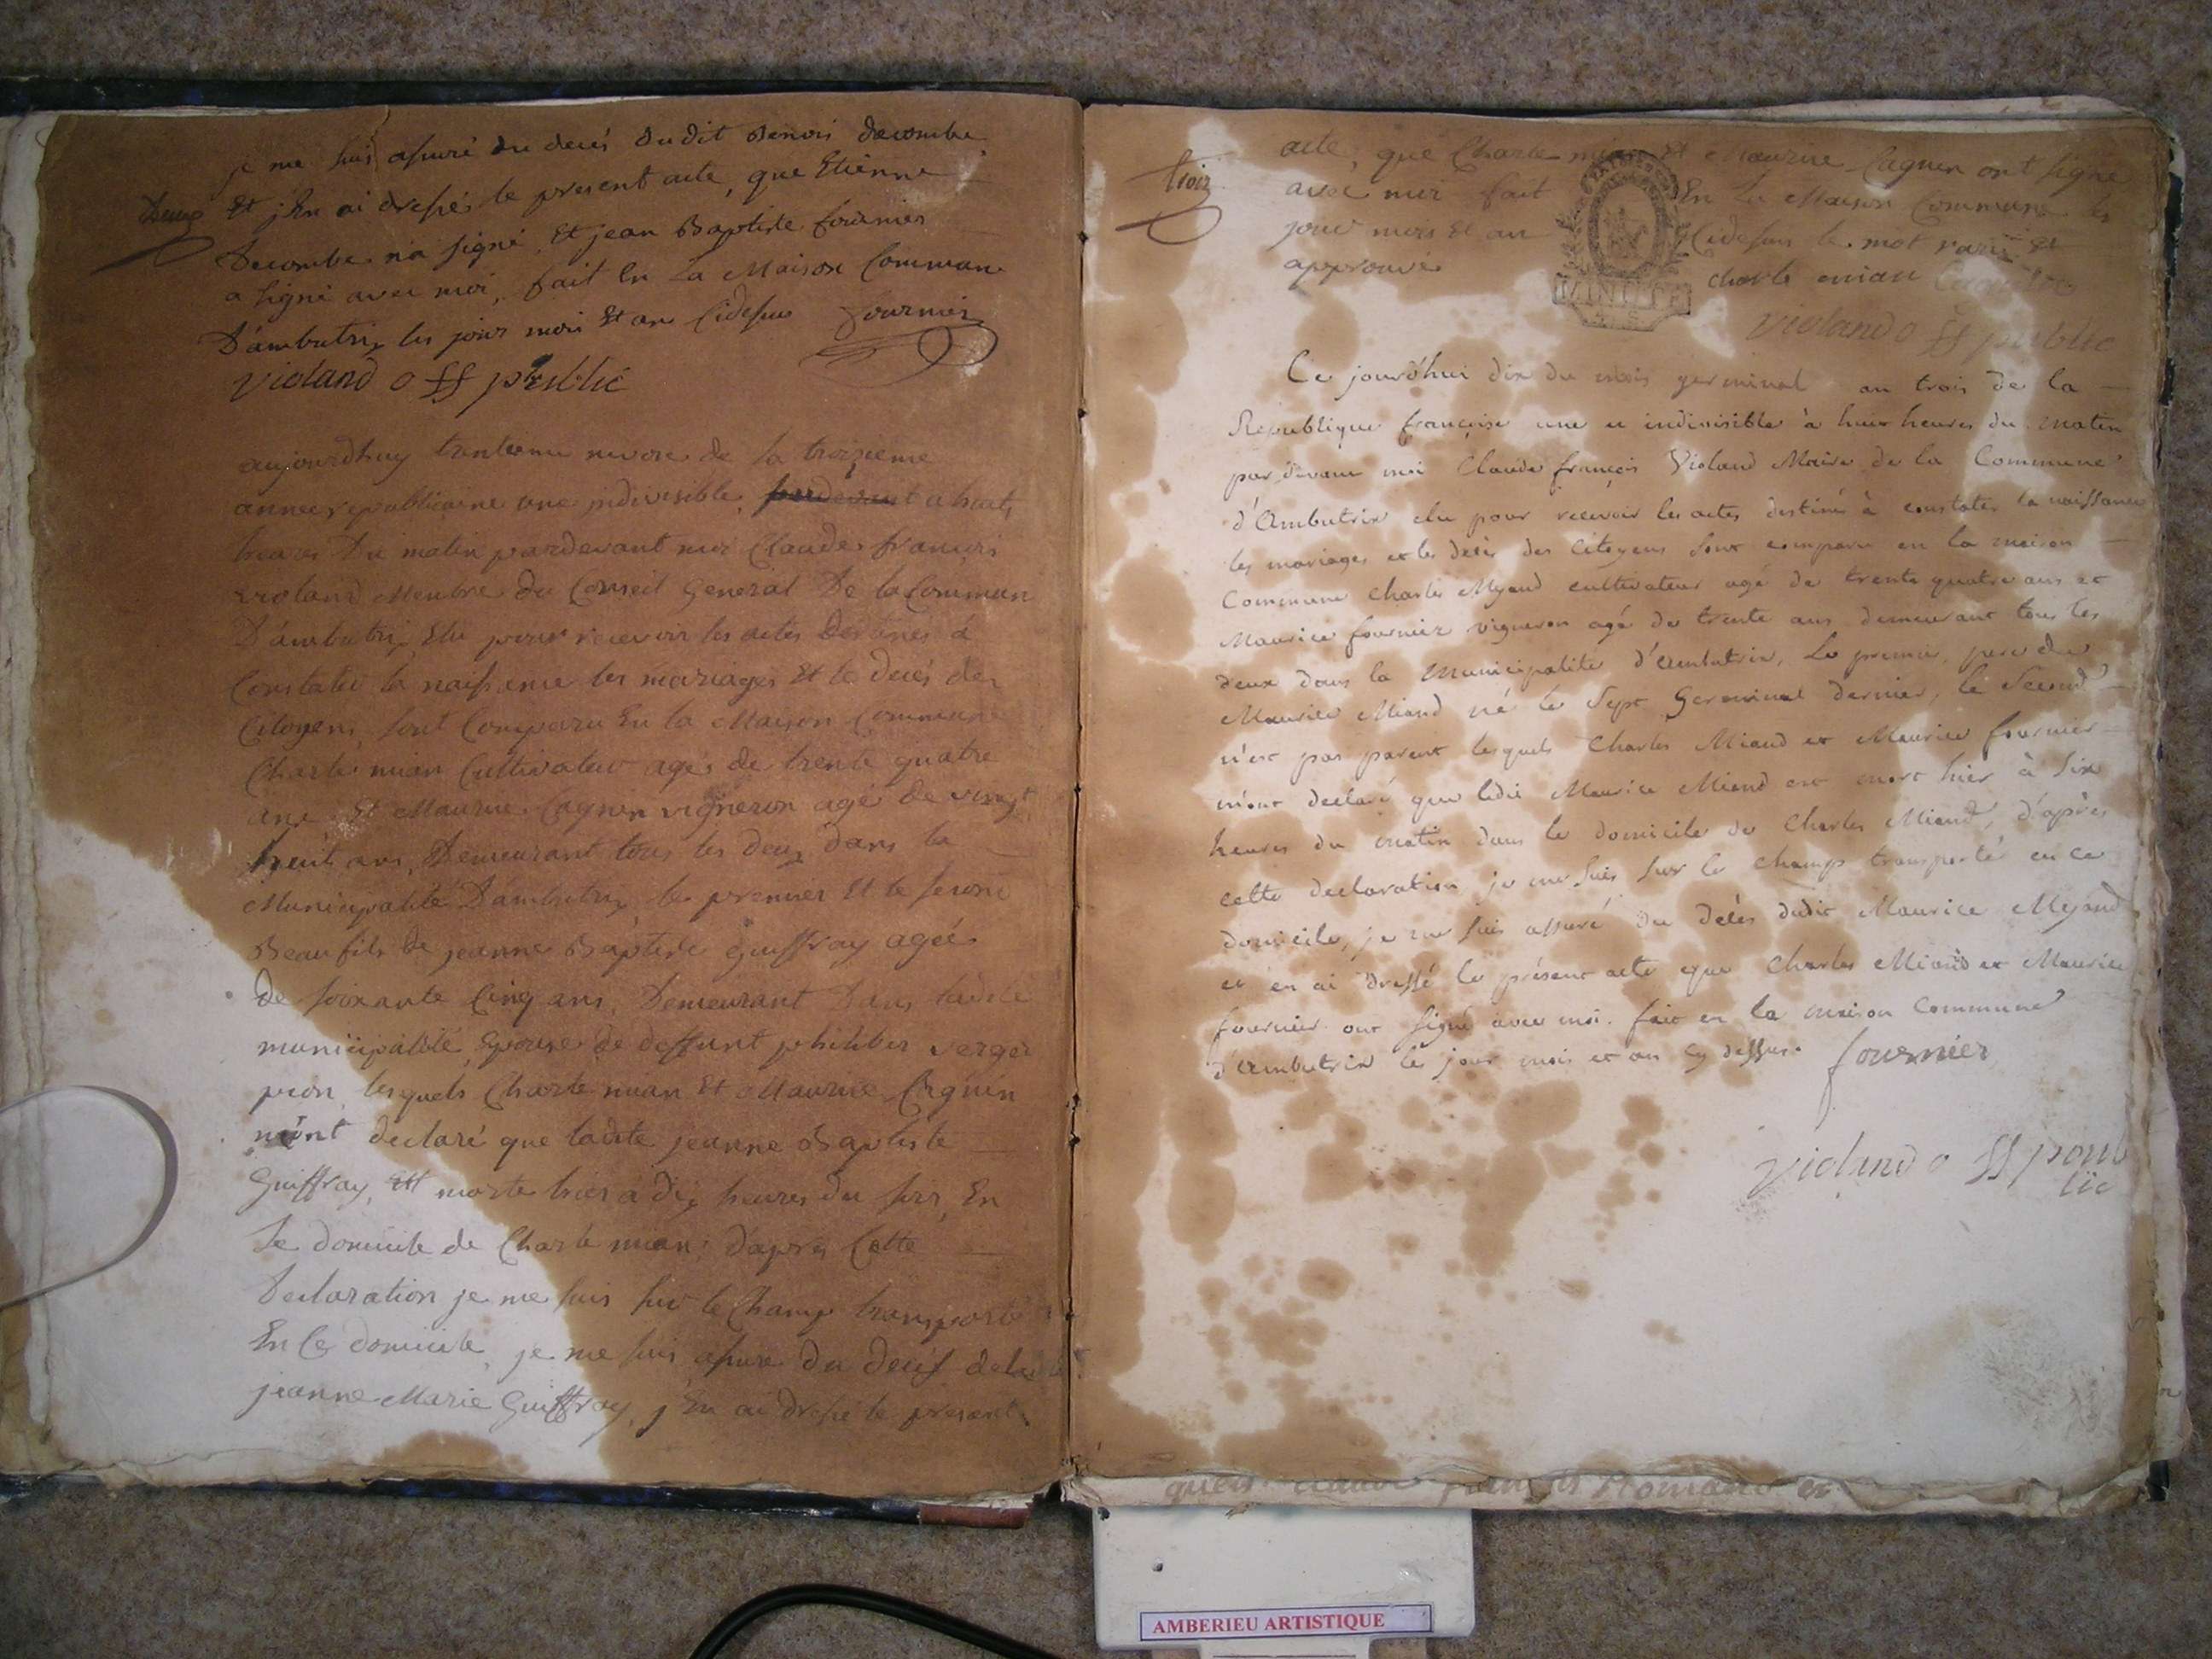 je me suis assuré du decés dudit Benoit decombe
Deux
Et j'En ai dressé le present acte, que Etienne
Decombe n'a signé, Et jean Baptiste fournier
a signé avec moi, fait En La Maison Commune
D'ambutrix les jour mois Et an Cidessus fournier
violand off public
aujourdhuy trentieme nivose de la troizieme
annee republicaine une indivisible, pardevant a huit
heures Du matin pardevant moi Claude francois
violand Membre du Conseil General De la Commun
D'ambutrix Elu pour recevoir les actes destinés à
Constater la naissance les mariages Et le decés des
Citoyens, sont Comparu En la Maison Commune
Charle mian Cultivateur agé de trente quatre
ans Et Maurice Cagnin vigneron agé de vingt
huit ans, Demeurant tous les deux dans la
Municipalité D'ambutrix, le premier Et le second
Beaufils de jeanne Baptiste Guiffray agée
de soixante Cinq ans, Demeurant Dans ladite
municipalité Epouse de deffunt philiber verger
pion, lesquels Charle mian Et Maurice Cagnin
m'ont declaré que ladite jeanne Baptiste
Guiffray, Est morte hier a dix heures du soir, En
le domicile de Charle mian, d'apres Cette
Declaration je me suis sur le Champ transporté
En Ce domicile, je me suis assure du decés de ladite
jeanne Marie Guiffray, j'En ai dressé le present
trois
acte, que Charle mian Et Maurice Cagnin ont signé
avec moi fait En La Maison Commune les
jour mois Et an Cidessus le mot
approuvé charle mian Cagnin
MINUTE
violand off public
Ce jourd'hui dix du mois germinal an trois de la
Republique françoise une et indivisible à huit heures du matin
par devant moi Claude françois Violand Maire de la Commune
d'Ambutrix elu pour recevoir les actes destinés à constater la naissance
les mariages et les decès des Citoyens sont comparu en la maison
Commune Charles Myand cultivateur agé de trente quatre ans et
Maurice fournier vigneron agé de trente ans demeurant tous les
deux dans la Municipalité d'Ambutrix, Le premier, pere de
Maurice Miand né le Sept Germinal dernier, le Second
n'est pas parent lesquels Charles Miand et Maurice fournier
m'ont declaré que ledit Maurice Miand est mort hier à six
heures du matin dans le domicile de Charles Miand, d'après
cette declaration je me suis sur le champ transporté en ce
domicile, je me suis assuré du decès dudit Maurice Myand
et en ai dressé le présent acte que Charles Miand et Maurice
fournier ont signé avec moi. fait en la maison Commune
d'Ambutrix les jour mois et an cy dessus. fournier
violand off poub
lic
quels claude françois et
AMBERIEU ARTISTIQUE